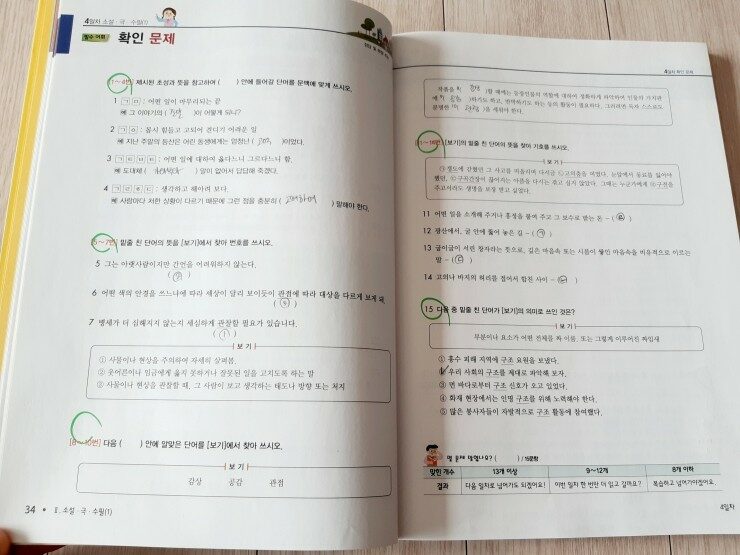 4일차 소설·극·수필(1)
필수 어휘 확인 문제
[1~4번] 제시된 초성과 뜻을 참고하여 ( )안에 들어갈 단어를 문맥에 맞게 쓰시오.
1 ㄱㅁ : 어떤 일이 마무리되는 끝
예 그 이야기의 ( 결말 )이 어떻게 되니?
2 ㄱㅇ : 몹시 힘들고 고되어 견디기 어려운 일
예 지난 주말의 등산은 어린 동생에게는 엄청난 ( 고역 )이었다.
3 : 어떤 일에 대하여 옳다느니 그르다느니 함.
예 도대체 ( ) 말이 없어서 답답해 죽겠다.
4 ㄱㄹㅎㄷ : 생각하고 헤아려 보다.
예 사람마다 처한 상황이 다르기 때문에 그런 점을 충분히 ( 고려하여 ) 말해야 한다.
[5~7번] 밑줄 친 단어의 뜻을 [보기]에서 찾아 번호를 쓰시오.
5 그는 아랫사람이지만 간언을 어려워하지 않는다.
( ② )
6 어떤 색의 안경을 쓰느냐에 따라 세상이 달리 보이듯이 관점에 따라 대상을 다르게 보게 돼.
( ③ )
7 병세가 더 심해지지 않는지 세심하게 관찰할 필요가 있습니다.
( ① )
보기
① 사물이나 현상을 주의하여 자세히 살펴봄.
② 웃어른이나 임금에게 옳지 못하거나 잘못된 일을 고치도록 하는 말
③ 사물이나 현상을 관찰할 때, 그 사람이 보고 생각하는 태도나 방향 또는 처지
[8~10번] 다음 ( ) 안에 알맞은 단어를 [보기]에서 찾아 쓰시오.
보기
감상 공감 관점
34 • Ⅱ. 소설·극·수필(1)
4일차 확인 문제
작품을 )할 때에는 등장인물의 역할에 대하여 정확하게 파악하여 인물의 가치관
에 )하기도 하고, 반박하기도 하는 등의 활동이 필요하다. 그러려면 독자 스스로도
분명한 ( 관점 )이 필요하다.
[11~14번] [보기]의 밑줄 친 단어의 뜻을 찾아 기호를 쓰시오.
보기
11 어떤 일을 소개해 주거나 흥정을 붙여 주고 그 보수로 받는 돈 - ( )
12 광산에서, 굴 안에 뚫어 놓은 길 - ( ㉠ )
13 굽이굽이 서린 창자라는 뜻으로, 깊은 마음속 또는 시름이 쌓인 마음속을 비유적으로 이르는
말 - ( ㉢ )
14 고의나 바지의 허리를 접어서 여민 사이 - ( ㉡ )
15 다음 중 밑줄 친 단어가 [보기]의 의미로 쓰인 것은?
보기
부분이나 요소가 어떤 전체를 짜 이룸. 또는 그렇게 이루어진 짜임새
① 홍수 피해 지역에 구조 요원을 보냈다.
② 우리 사회의 구조를 제대로 파악해 보자.
③ 먼 바다로부터 구조 신호가 오고 있었다.
④ 화재 현장에서는 인명 구조를 위해 노력해야 한다.
⑤ 많은 봉사자들이 자발적으로 구조 활동에 참여했다.
몇 문제 맞혔나요? ( ) / 15문항
맞힌 개수 13개 이상 9~12개 8개 이하
결과 다음 일차로 넘어가도 되겠어요! 이번 일차 한 번만 더 읽고 갈까요? 복습하고 넘어가야겠어요.
4일차